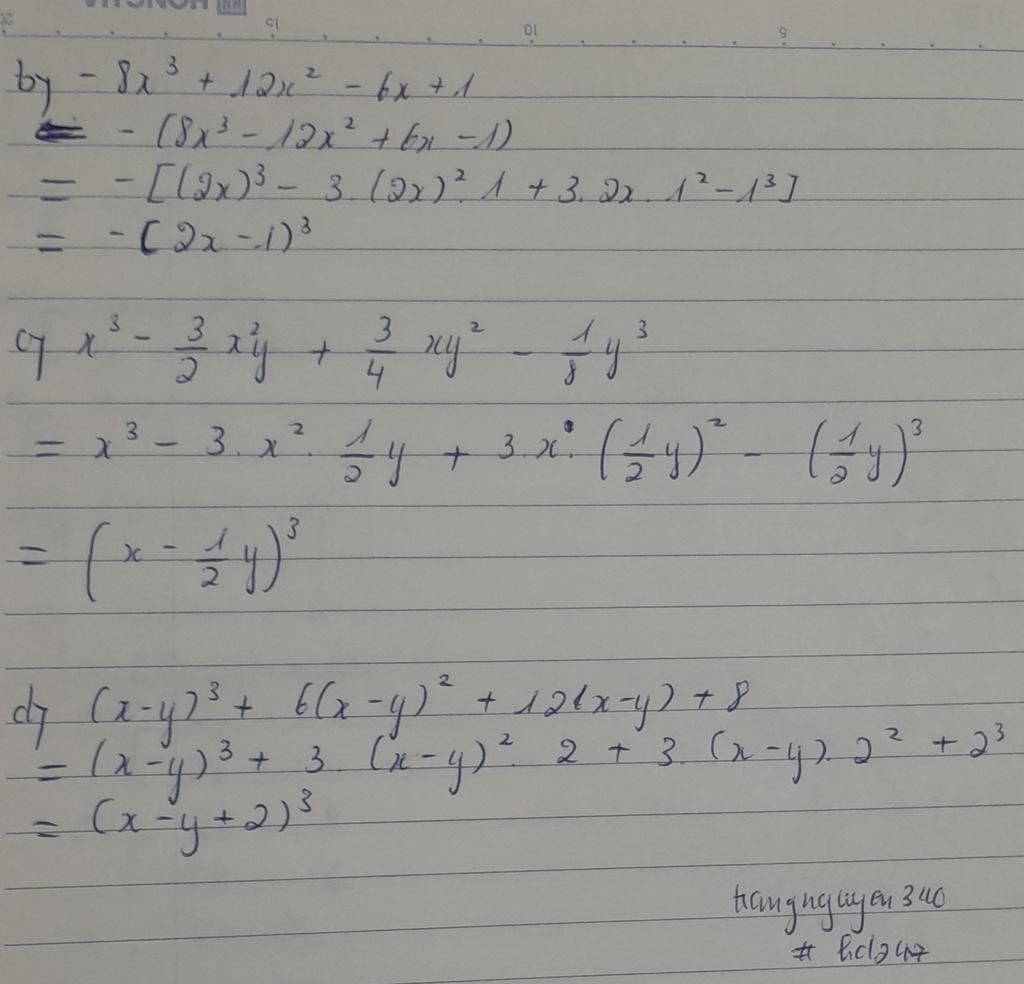 20 15 10 5
b) - 8x³ + 12x² - 6x + 1
= - (8x³ - 12x² + 6x - 1)
= - [(2x)³ - 3.(2x)².1 + 3.2x.1² - 1³]
= - (2x - 1)³
c) x³ - 3/2 x²y + 3/4 xy² - 1/8 y³
= x³ - 3.x².1/2 y + 3.x.(1/2 y)² - (1/2 y)³
= (x - 1/2 y)³
d) (x-y)³ + 6(x-y)² + 12(x-y) + 8
= (x-y)³ + 3.(x-y)².2 + 3.(x-y).2² + 2³
= (x-y+2)³
trangnguyen340
# hd247